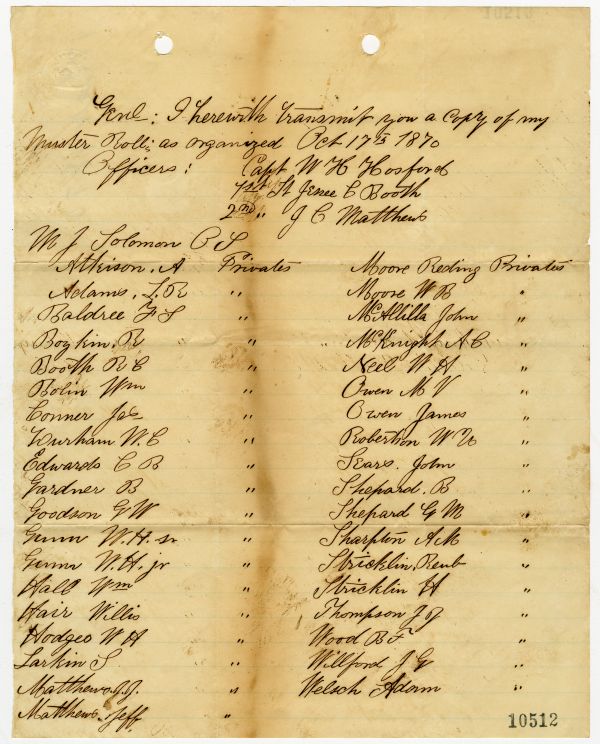 10215
Genl: I herewith transmit you a copy of my
Muster Roll; as organized Oct 17th 1870
Officers: Capt W H Hosford
1st Lt Jesse C Booth
2nd " J C Matthews
W J Solomon O S
Atkison, A Privates
Adams, L. R "
Baldree F S "
Boykin, R "
Booth R C "
Bolin Wm "
Conner Jas "
Durham W. C "
Edwards C B "
Gardner B "
Goodson G W "
Gunn W. H. sr "
Gunn W. H. jr "
Hall Wm "
Hair Willis "
Hodges W H "
Larkin S "
Matthews J. J. "
Matthews, Jeff "
Moore Reding Privates
Moore W B "
John "
McKnight A C "
Neel W H "
Owen M V "
Owen James "
Robertson W "
Sears. John "
Shepard. B "
Shepard G M "
Sharpton A M "
Stricklin, Reub "
Stricklin H "
Thompson J "
Wood B F "
Willford J G "
Welsch Adam "
10512